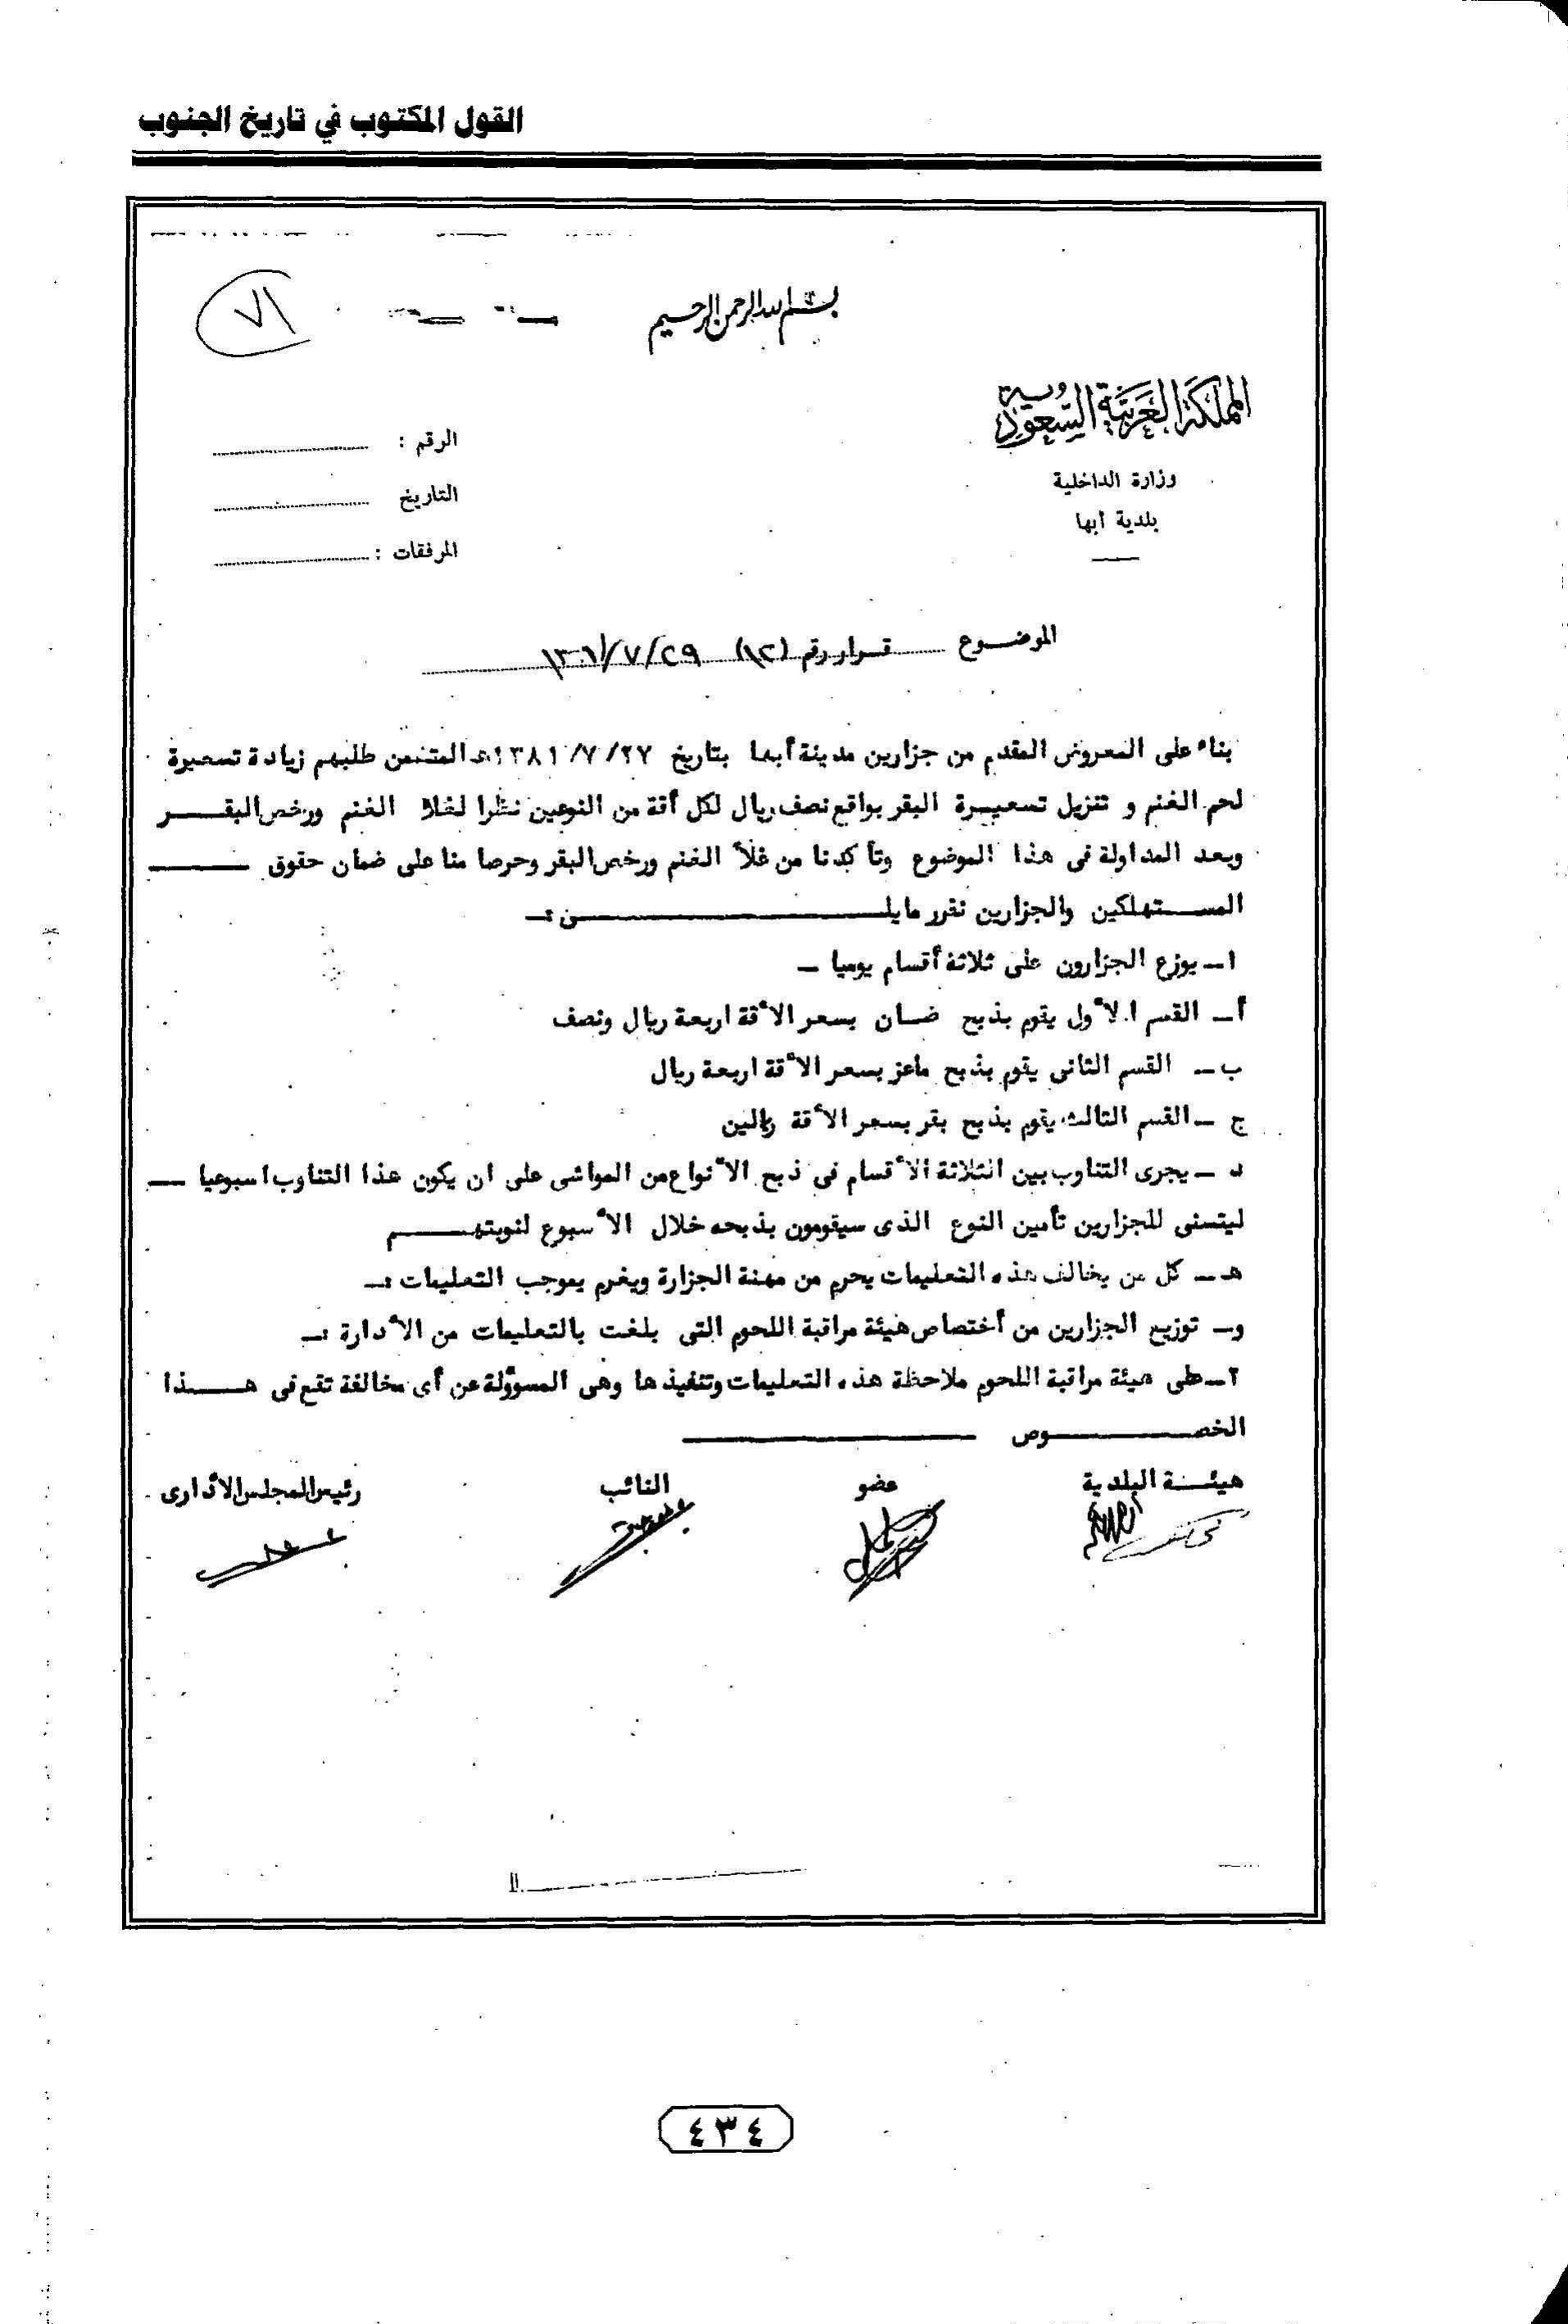 القول المكتوب في تاريخ الجنوب
٧١
بسم الله الرحمن الرحيم
المملكة العربية السعودية
وزارة الداخلية
بلدية أبها
الرقم :
التاريخ
المرفقات :
الموضـــوع قـرار رقم (١٢) ٢٩/٧/١٣٨١
بناء على المعروض المقدم من جزارين مدينة أبها بتاريخ ٢٧/٧/١٣٨١هـ المتضمن طلبهم زيادة تسعيرة
لحم الغنم و تنزيل تسعيـرة البقر بواقع نصف ريال لكل أقة من النوعين نظرا لغلا الغنم ورخص البقــر
وبعد المداولة فى هذا الموضوع وتأكدنا من غلأ الغنم ورخص البقر وحرصا منا على ضمان حقوق ــــ
المســتهلكين والجزارين نقرر مايلــــــــى :ـ
١ــ يوزع الجزارون على ثلاثة أقسام يوميا ــ
أــ القسم الأول يقوم بذبح ضــان بسعر الأقة اربعة ريال ونصف
ب ــ القسم الثانى يقوم بذبح ماعز بسعر الأقة اربعة ريال
ج ــ القسم الثالث يقوم بذبح بقر بسعر الأقة ريالين
د ــ يجرى التناوب بين الثلاثة الأقسام فى ذبح الأنواع من المواشى على ان يكون هذا التناوب اسبوعيا ــ
ليتسنى للجزارين تأمين النوع الذى سيقومون بذبحه خلال الأسبوع لنوبتهــــم
هـ ــ كل من يخالف هذه التعليمات يحرم من مهنة الجزارة ويغرم بموجب التعليمات :ـ
وــ توزيع الجزارين من أختصاص هيئة مراقبة اللحوم التى بلغت بالتعليمات من الأدارة :ـ
٢ــ على هيئة مراقبة اللحوم ملاحظة هذه التعليمات وتنفيذها وهى المسؤولة عن أى مخالفة تقع فى هــــذا
الخصــــــوص ــــــــ
هيئــة البلدية عضو النائب رئيس المجلس الأدارى
٤٣٤